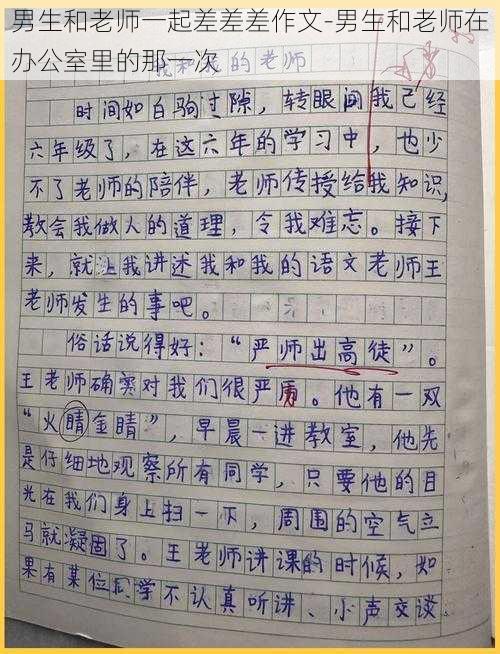 男生和老师一起差差差作文-男生和老师在
办公室里的那一次
我和我的老师
时间如白驹过隙，转眼间我己经
六年级了，在这六年的学习中，也少
不了老师的陪伴，老师传授给我知识，
教会我做人的道理，令我难忘。接下
来，就让我讲述我和我的语文老师王
老师发生的事吧。
俗话说得好：“严师出高徒”。
王老师确实对我们很严厉。他有一双
“火睛金睛”，早晨一进教室，他先
是仔细地观察所有同学，只要他的目
光在我们身上扫一下，周围的空气立
马就凝固了。王老师讲课的时候，如
果有某位同学不认真听讲、小声交谈